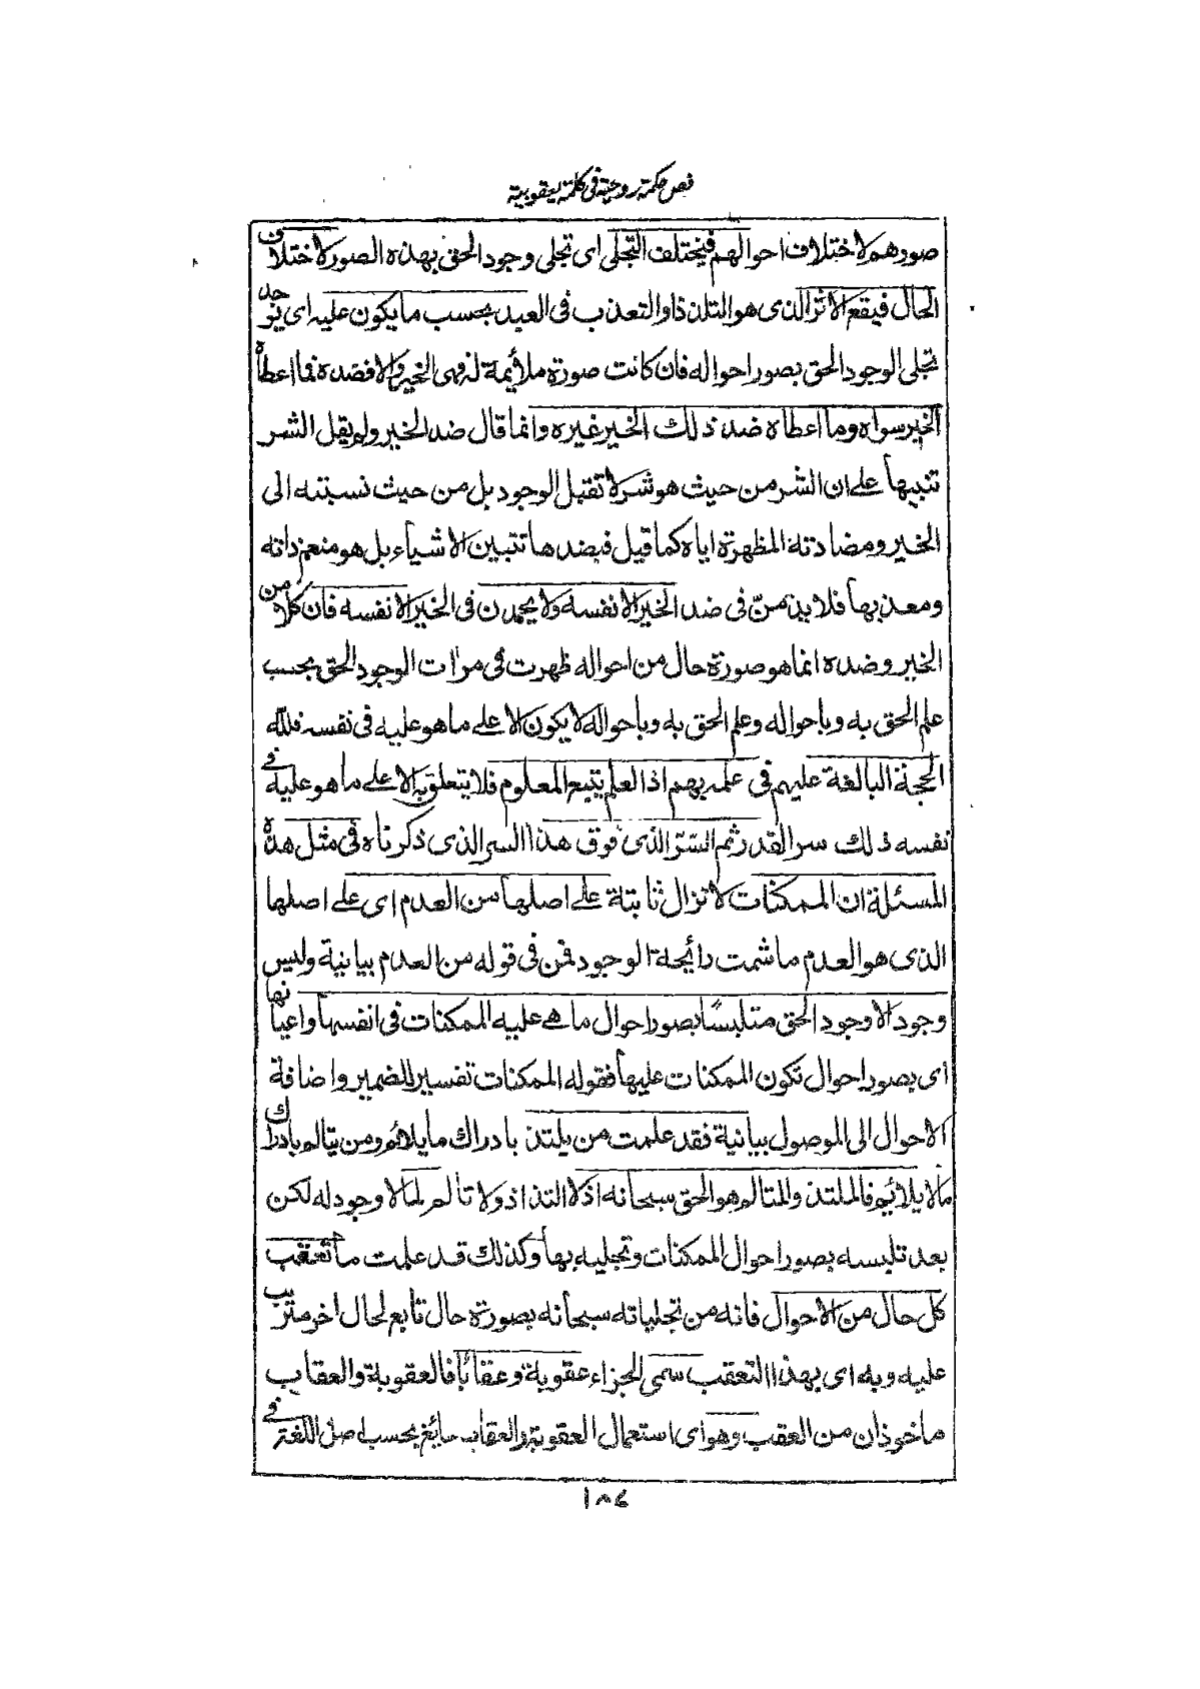 فص حكمة روحية فى كلمة يعقوبية
صورهم لاختلاف احوالهم فيختلف التجلى اى تجلى وجود الحق بهذه الصور لاختلاف
الحال فيقع الاثر الذى هو التلذذ او التعذب فى العبد بحسب ما يكون عليه اى يوجد
تجلى الوجود الحق بصور احواله فان كانت صورة ملائمة له فهى الخير والا فضده فما اعطاه
الخير سواه وما اعطاه ضد ذلك الخير غيره وانما قال ضد الخير ولم يقل الشر
تنبيها على ان الشر من حيث هو شر لا تقبل الوجود بل من حيث نسبته الى
الخير ومضادته المظهرة اياه كما قيل فبضدها تتبين الاشياء بل هو منعم ذاته
ومعذبها فلا يذمن فى ضد الخير الا نفسه ولا يحمدن فى الخير الا نفسه فان كلا من
الخير وضده انما هو صورة حال من احواله ظهرت فى مرات الوجود الحق بحسب
علم الحق به وباحواله وعلم الحق به وباحواله لا يكون الا على ما هو عليه فى نفسه فلله
الحجة البالغة عليهم فى علمه بهم اذ العلم يتبع المعلوم فلا يتعلق به الا على ما هو عليه فى
نفسه ذلك سر القدر ثم السر الذى فوق هذا السر الذى ذكرناه فى مثل هذه
المسئلة ان الممكنات لا تزال ثابتة على اصلها من العدم اى على اصلها
الذى هو العدم ما شمت رائحة الوجود فمن فى قوله من العدم بيانية وليس
وجود الا وجود الحق متلبسا بصور احوال ما هى عليه الممكنات فى انفسها واعيانها
اى بصور احوال تكون الممكنات عليها فقوله الممكنات تفسير للضمير واضافة
الاحوال الى الموصول بيانية فقد علمت من يلتذ بادراك ما يلائم ومن يتالم بادراك
ما لا يلائم فالملتذ والمتالم هو الحق سبحانه اذ لا التذاذ ولا تألم لما لا وجود له لكن
بعد تلبسه بصور احوال الممكنات وتجليه بها وكذلك قد علمت ما تعقب
كل حال من الاحوال فانه من تجلياته سبحانه بصورة حال تابع لحال اخر مترتب
عليه وبه اى بهذا التعقب سمى الجزاء عقوبة وعقابا فالعقوبة والعقاب
ماخوذان من العقب وهو اى استعمال العقوبة والعقاب سائغ بحسب اصل اللغة فى
١٨٤